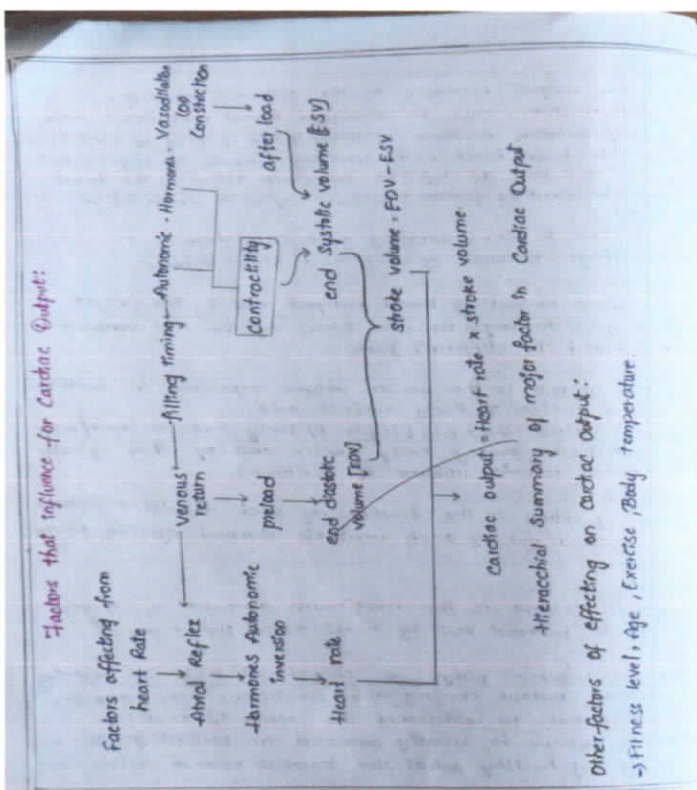 Factors that influence for Cardiac Output:
Factors affecting from
heart Rate
Atrial Reflex
Harmons Autonomic
inversion
Heart rate
venous
return
preload
end diastolic
volume [EDV]
filling timing
Autonomic - Hormones - Vasodilation
(or)
Constriction
contractility
after load
end systolic volume [ESV]
stroke volume = EDV-ESV
cardiac output = Heart rate x stroke volume.
Hieracchial Summary of major factor in Cardiac Output
Other-factors of effecting on cardiac output:
→ Fitness level, Age, Exercise, Body temperature.